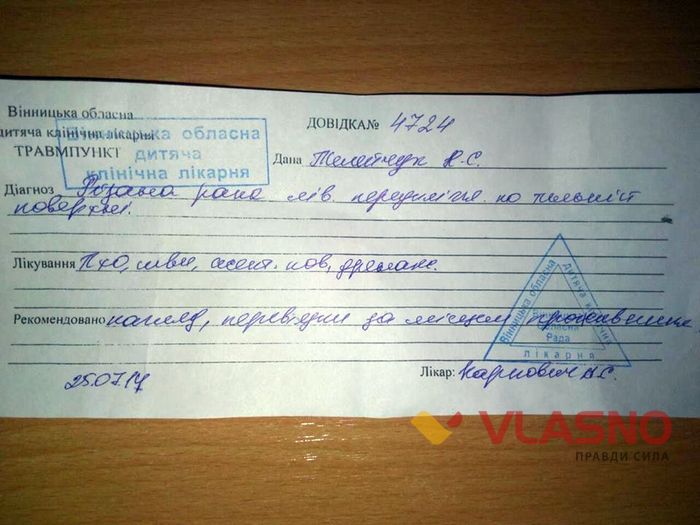 Вінницька обласна
дитяча клінічна лікарня
ТРАВМПУНКТ
Вінницька обласна
дитяча
клінічна лікарня
ДОВІДКА№ 4724
Дана Телейчук
Діагноз Різана рана лів. передпліччя по тильній
поверхні.
Лікування ПХО, шви, асепт. пов, дренаж.
Рекомендовано нагляд, перевязки за місцем проживання
Вінницька обласна
дитяча клінічна
лікарня
обласна
Рада
25.07.17
Лікар: Карпович А.С.
VLASNO
ПРАВДИ СИЛА